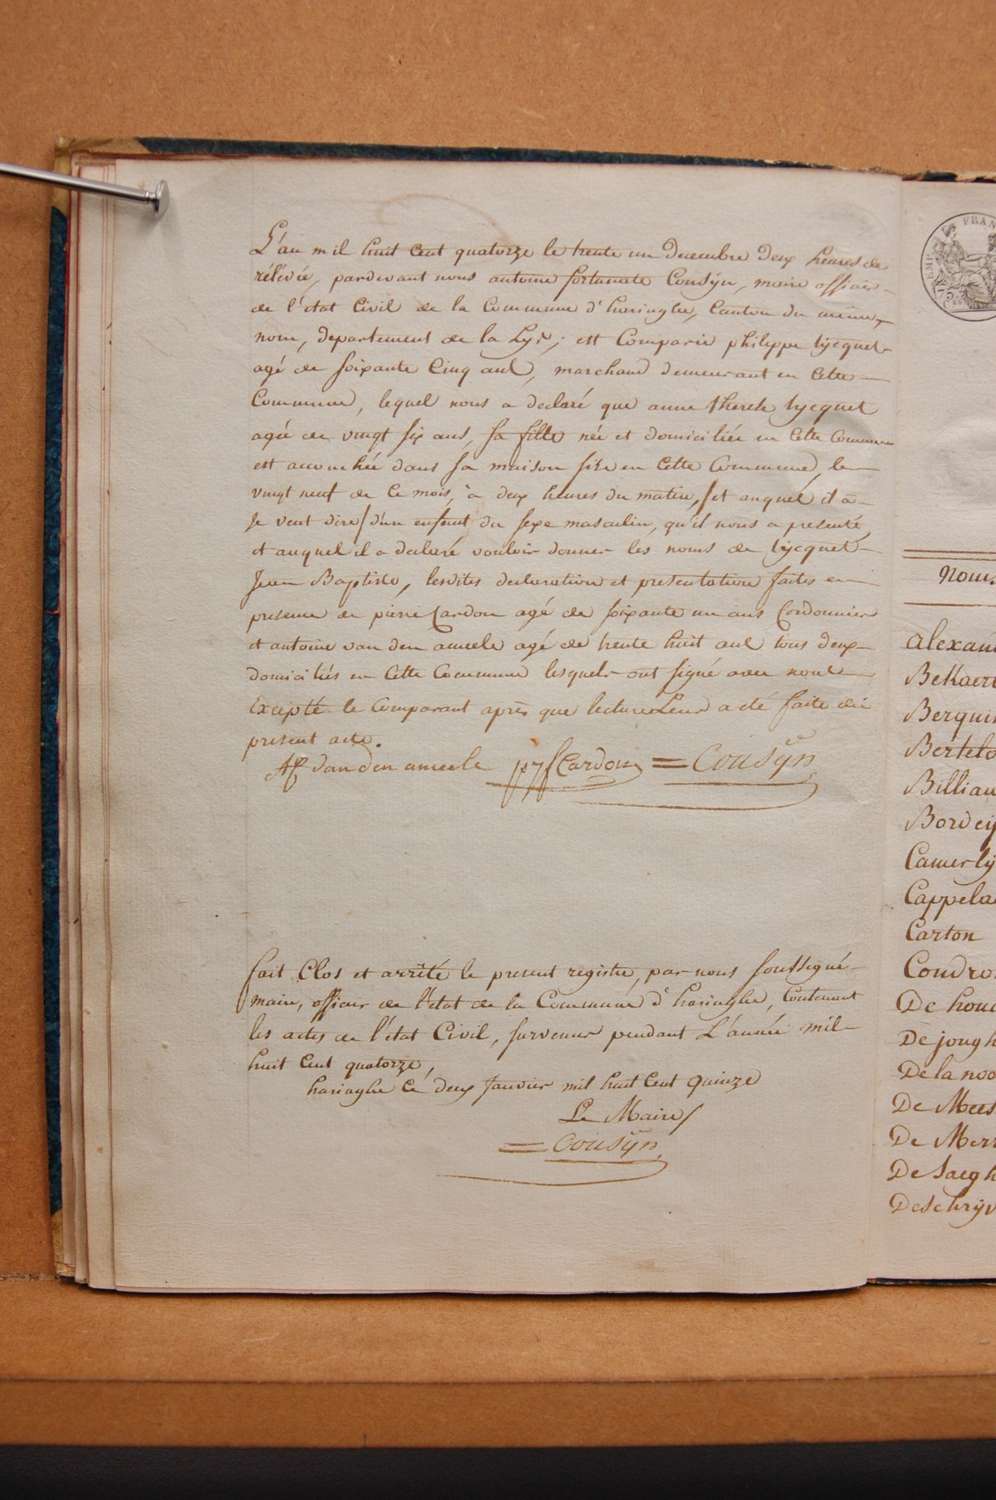 L'an mil huit cent quatorze le trente un decembre deux heures de
rélévée, pardevant nous antoine fortunate Cousÿn, maire officier
de l'état Civil de la Commune d'haringhe, Canton du même
nom, departement de la Lys, est Comparu philippe tÿcquet
agé de soixante Cinq ans, marchand demeurant en Cette
Commune, lequel nous a declaré que anne therese tÿcquet
agée de vingt six ans, sa fille née et domiciliée en Cette Commune
est accouchée dans sa maison site en Cette Commune, le
vingt neuf de Ce mois, à deux heures du matin, /et auquel il a
se veut dire/ d'un enfant du sexe masculin, qu'il nous a presenté
et auquel il a declaré vouloir donner les noms de tÿcquet
Jean Baptiste, lesdites declaration et presentation faites en
presence de pierre Cardon agé de soixante un ans Cordonnier
et antoine van den ameele agé de trente huit ans tous deux
domiciliés en Cette Commune lesquels ont signé avec nous
Excepté le Comparant après que lecture Leur a été faite du
present acte.
Af vanden ameele p j f Cardon = Cousÿn
fait Clos et arrêté le present registre, par nous soussigné
maire, officier de l'état de la Commune d'haringhe, Contenant
les actes de l'état Civil, survenus pendant L'année mil
huit Cent quatorze,
haringhe Ce deux Janvier mil huit Cent quinze
Le Maire/
= Cousÿn
FRAN
Nom
Alexan
BeKaert
Berqui
Bertelo
Billiau
Bordeÿ
Camerlÿ
Cappela
Carton
Coudro
De hou
De jongh
De la noo
De Mees
De Mer
De Saegh
Deschrÿv